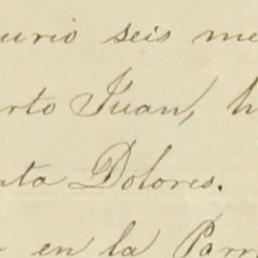 urio seis me
rto Juan, h
nta Dolores.
en la Parr